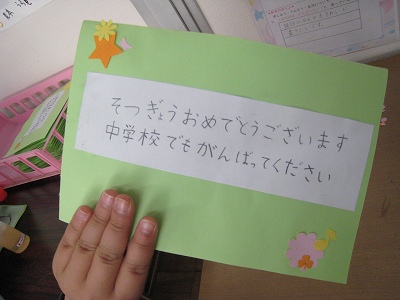 そつぎょうおめでとうございます
中学校でもがんばってください